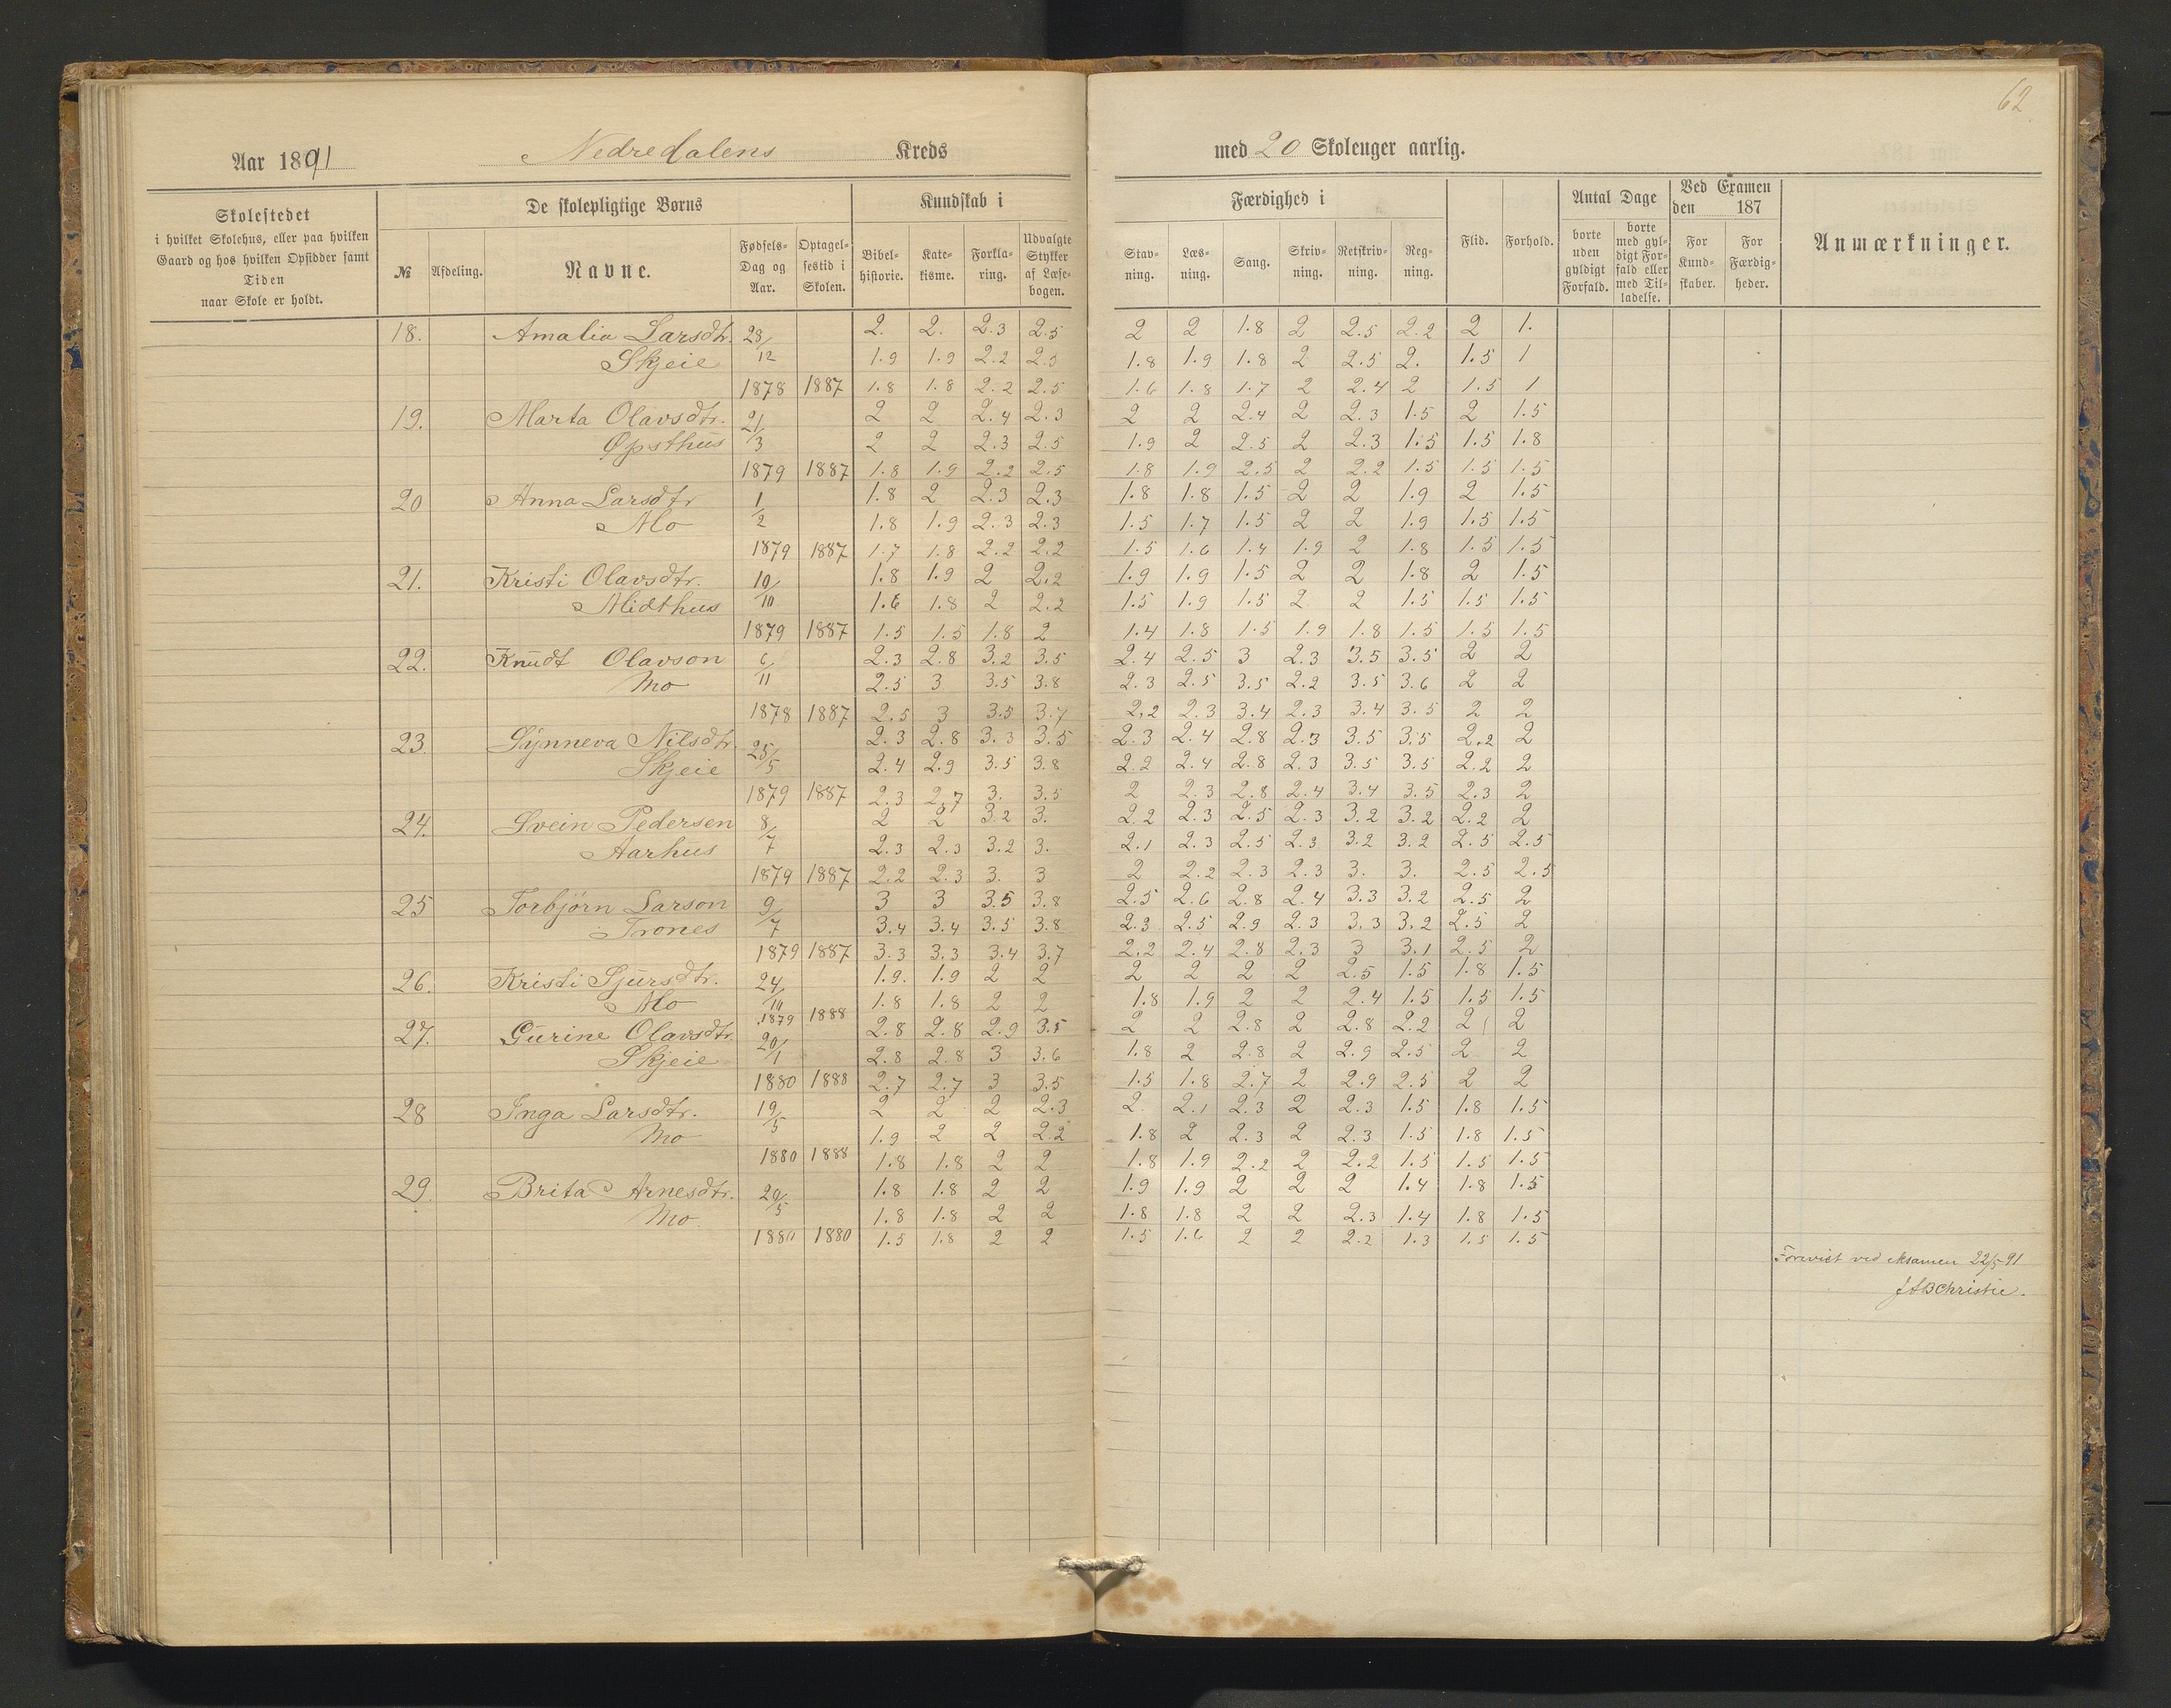 62
Aar 1891 Nedredalens Kreds med 20 Skoleuger aarlig.
Skolestedet
i hvilket Skolehus, eller paa hvilken
Gaard og hos hvilken Opsidder samt
Tiden
naar Skole er holdt.
De skolepligtige Børns
№ Afdeling. Navne. Fødsels-Dag og Aar. Optagelsestid i Skolen.
Kundskab i
Bibelhistorie. Katekisme. Forklaring. Udvalgte Stykker af Læsebogen.
Færdighed i
Stavning. Læsning. Sang. Skrivning. Retskrivning. Regning.
Flid. Forhold.
Antal Dage
borte uden gyldigt Forfald. borte med gyldigt Forfald eller med Tilladelse.
Ved Examen den 187
For Kundskaber. For Færdigheder.
Anmærkninger.
18. Amalia Larsdtr. 28/ 2. 2. 2.3 2.5 2 2 1.8 2 2.5 2.2 2 1.
Skjeie 12 1.9 1.9 2.2 2.5 1.8 1.9 1.8 2 2.5 2. 1.5 1
1878 1887 1.8 1.8 2.2 2.5 1.6 1.8 1.7 2 2.4 2 1.5 1
19. Marta Olavsdtr. 21/ 2 2 2.4 2.3 2 2 2.4 2 2.3 1.5 2 1.5
Opsthus 3 2 2 2.3 2.5 1.9 2 2.5 2 2.3 1.5 1.5 1.8
1879 1887 1.8 1.9 2.2 2.5 1.8 1.9 2.5 2 2.2 1.5 1.5 1.5
20 Anna Larsdtr 1/ 1.8 2 2.3 2.3 1.8 1.8 1.5 2 2 1.9 2 1.5
Mo 2 1.8 1.9 2.3 2.3 1.5 1.7 1.5 2 2 1.9 1.5 1.5
1879 1887 1.7 1.8 2.2 2.2 1.5 1.6 1.4 1.9 2 1.8 1.5 1.5
21. Kristi Olavsdtr. 10/ 1.8 1.9 2 2.2 1.9 1.9 1.5 2 2 1.8 2 1.5
Midthus 10 1.6 1.8 2 2.2 1.5 1.9 1.5 2 2 1.5 1.5 1.5
1879 1887 1.5 1.5 1.8 2 1.4 1.8 1.5 1.9 1.8 1.5 1.5 1.5
22. Knudt Olavson 6/ 2.3 2.8 3.2 3.5 2.4 2.5 3 2.3 3.5 3.5 2 2
Mo 11 2.5 3 3.5 3.8 2.3 2.5 3.5 2.2 3.5 3.6 2 2
1878 1887 2.5 3 3.5 3.7 2.2 2.3 3.4 2.3 3.4 3.5 2 2
23. Synneva Nilsdtr. 25/ 2.3 2.8 3.3 3.5 2.3 2.4 2.8 2.3 3.5 3.5 2.2 2
Skjeie 5 2.4 2.9 3.5 3.8 2.2 2.4 2.8 2.3 3.5 3.5 2.2 2
1879 1887 2.3 2.7 3. 3.5 2 2.3 2.8 2.4 3.4 3.5 2.3 2
24. Svein Pedersen 8/ 2 2 3.2 3. 2.2 2.3 2.5 2.3 3.2 3.2 2.2 2
Aarhus 7 2.3 2.3 3.2 3. 2.1 2.3 2.5 2.3 3.2 3.2 2.5 2.5
1879 1887 2.2 2.3 3. 3 2 2.2 2.3 2.3 3. 3. 2.5 2.5
25 Torbjørn Larson 9/ 3 3 3.5 3.8 2.5 2.6 2.8 2.4 3.3 3.2 2.5 2
Trones 7 3.4 3.4 3.5 3.8 2.3 2.5 2.9 2.3 3.3 3.2 2.5 2
1879 1887 3.3 3.3 3.4 3.7 2.2 2.4 2.8 2.3 3 3.1 2.5 2
26. Kristi Sjursdtr. 24/ 1.9. 1.9 2 2 2 2 2 2 2.5 1.5 1.8 1.5
Mo 10 1879 1888 1.8 1.8 2 2 1.8 1.9 2 2 2.4 1.5 1.5 1.5
27. Gurine Olavsdtr. 20/ 2.8 2.8 2.9 3.5 2 2 2.8 2 2.8 2.2 2 2
Skjeie 1 2.8 2.8 3 3.6 1.8 2 2.8 2 2.9 2.5 2 2
1880 1888 2.7 2.7 3 3.5 1.5 1.8 2.7 2 2.9 2.5 2 2
28 Inga Larsdtr. 19/ 2 2 2 2.3 2 2.1 2.3 2 2.3 1.5 1.8 1.5
Mo 5 1.9 2 2 2.2 1.8 2 2.3 2 2.3 1.5 1.8 1.5
1880 1888 1.8 1.8 2 2 1.8 1.9 2.2 2 2.2 1.5 1.5 1.5
29. Brita Arnesdtr. 29/ 1.8 1.8 2 2 1.9 1.9 2 2 2 1.4 1.8 1.5
Mo 5 1.8 1.8 2 2 1.8 1.8 2 2 2.3 1.4 1.8 1.5
1880 1880 1.5 1.8 2 2 1.5 1.6 2 2 2.2 1.3 1.5 1.5
Forevist ved eksamen 22/5-91
JABChristie.